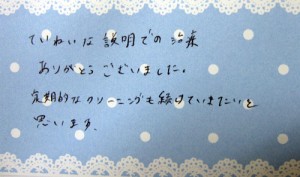 ていねいな説明での治療
ありがとうございました。
定期的なクリーニングも続けていきたいと
思います。